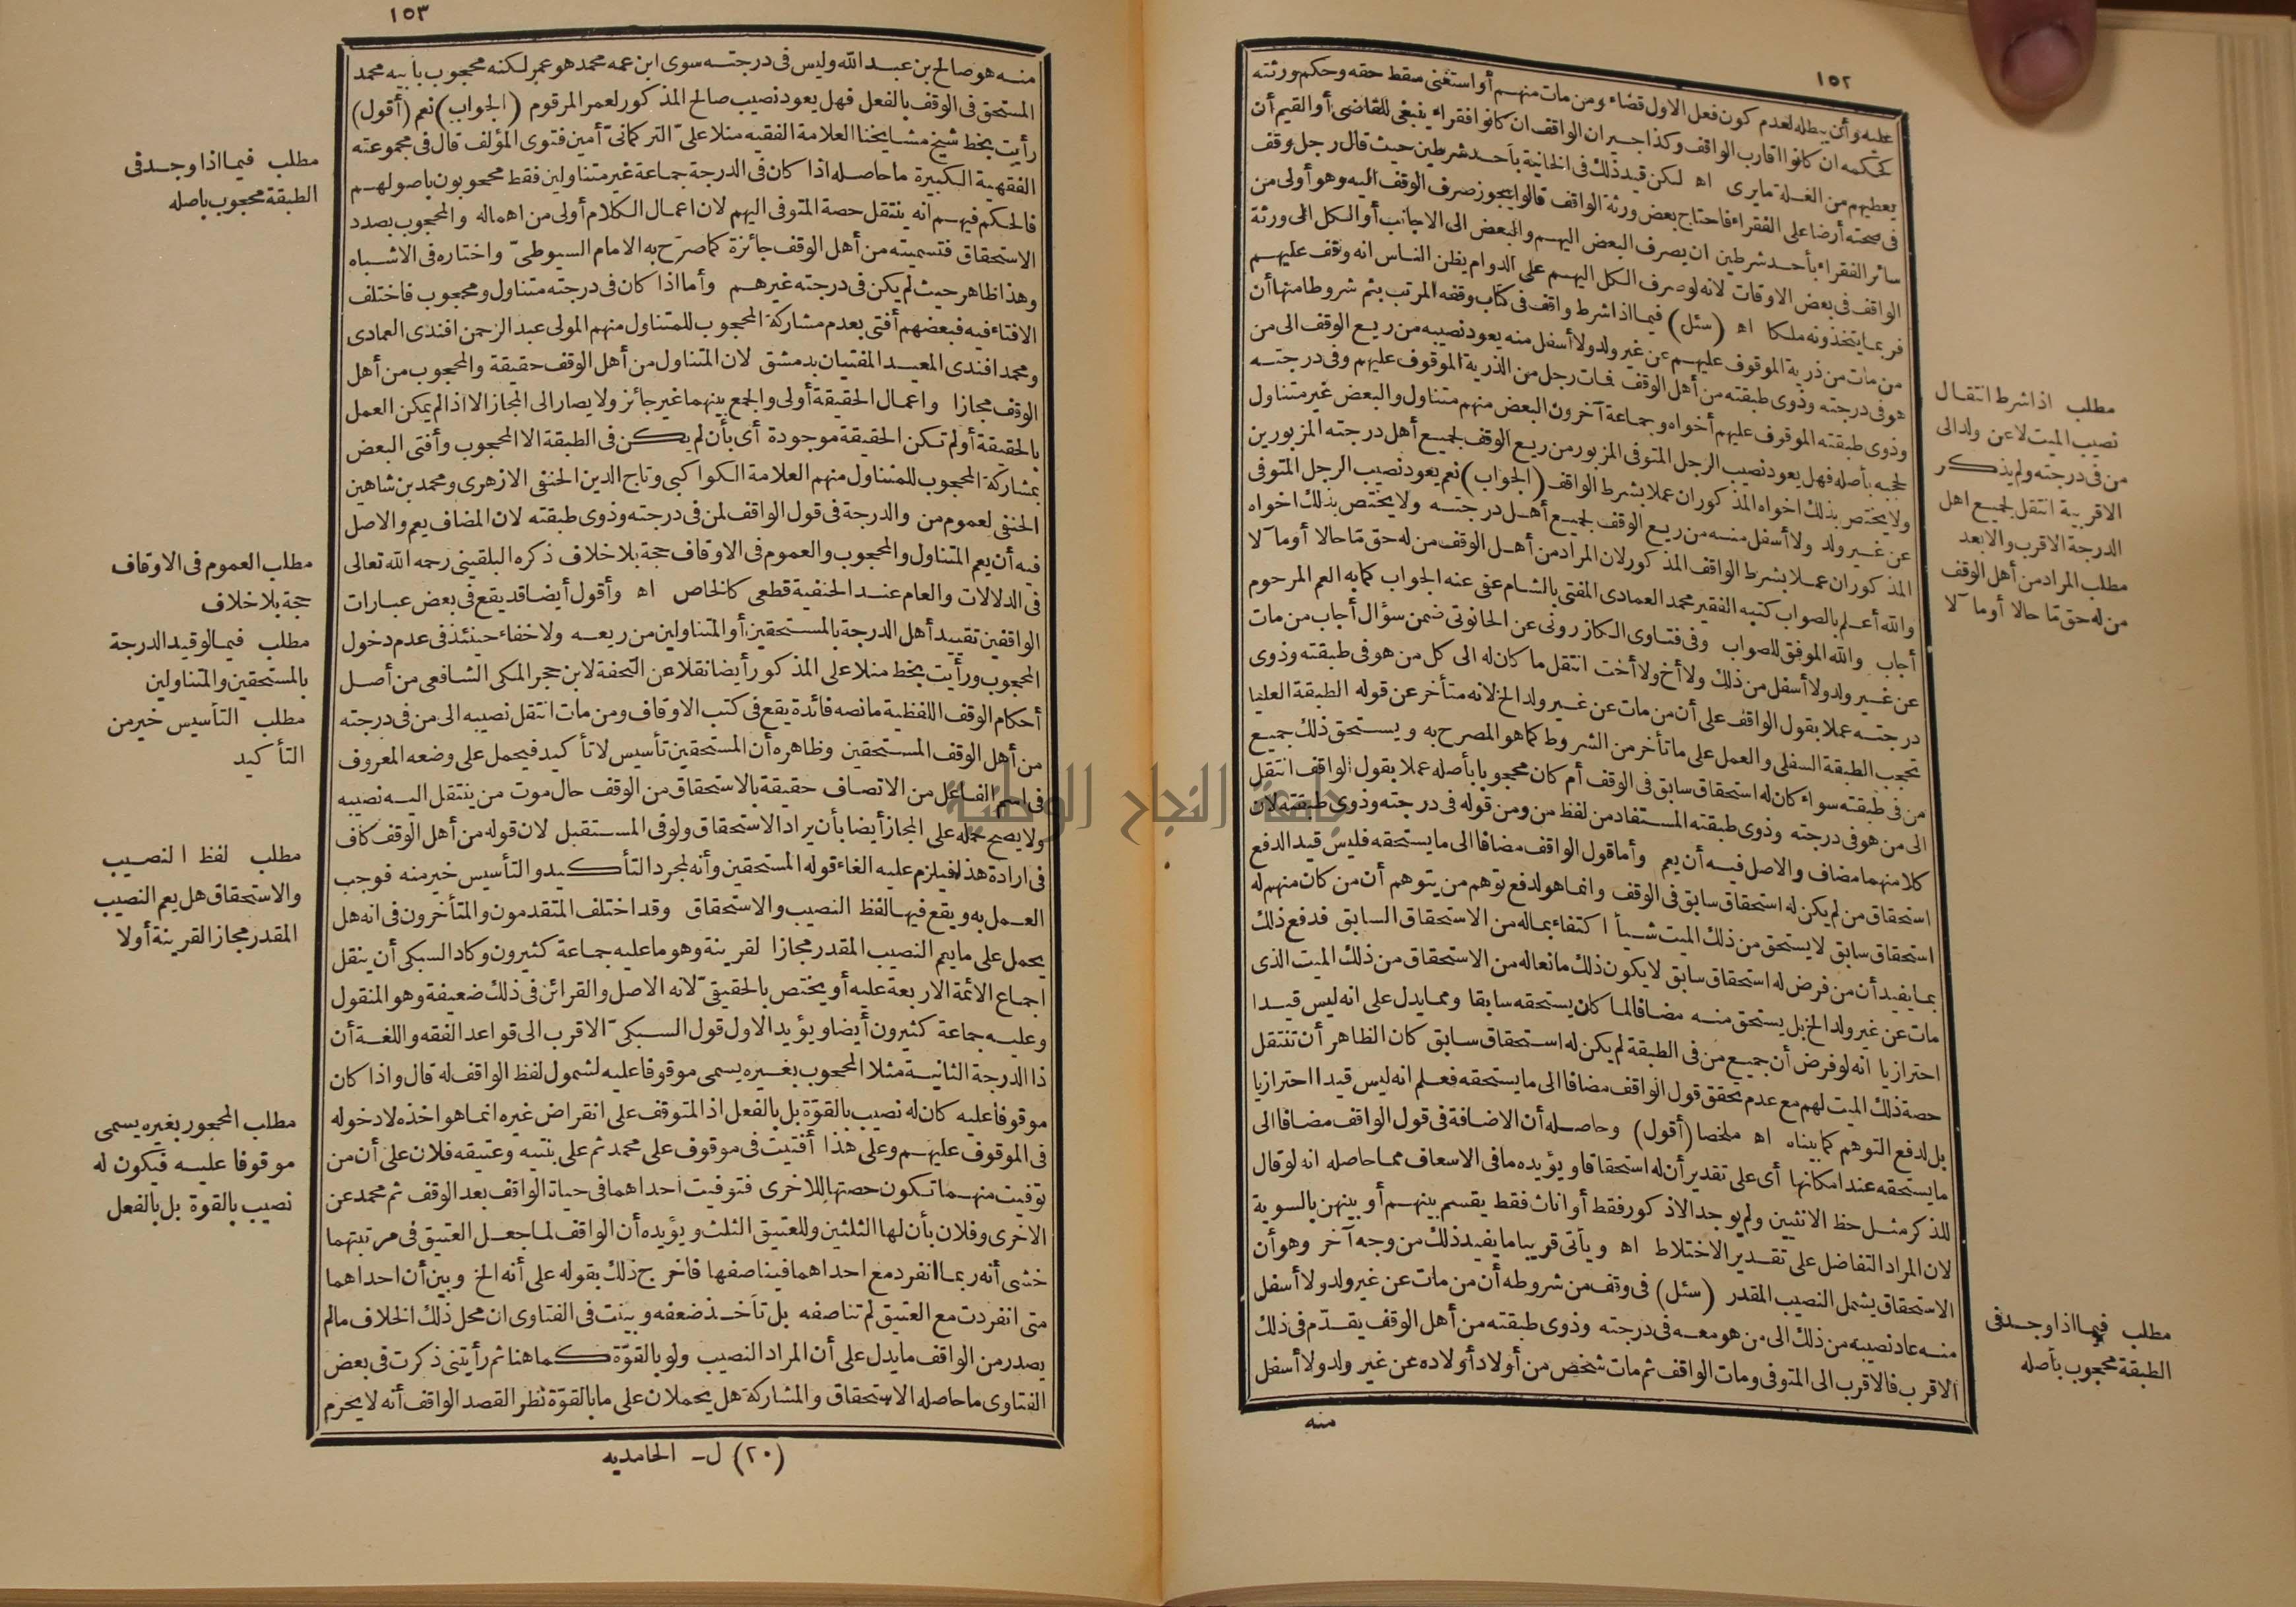 ١٥٢
عليه وأن يبطله لعدم كون فعل الاول قضاء ومن مات منهم أو استغنى سقط حقه وحكم ورثته
كحكمه ان كانوا اقارب الواقف وكذا جيران الواقف ان كانوا فقراء ينبغى للقاضى أو القيم أن
يعطيهم من الغلة ما يرى اه لكن قيد ذلك فى الخانية بأحد شرطين حيث قال رجل وقف
فى صحته أرضا على الفقراء فاحتاج بعض ورثة الواقف قالوا يجوز صرف الوقف اليه وهو أولى من
سائر الفقراء بأحد شرطين ان يصرف البعض اليهم والبعض الى الاجانب أو الكل الى ورثة
الواقف فى بعض الاوقات لانه لو صرف الكل اليهم على الدوام يظن الناس انه وقف عليهم
فربما يتخذونه ملكا اه (سئل) فيما اذا شرط واقف فى كتاب وقفه المرتب بثم شروطا منها أن
من مات من ذرية الموقوف عليهم عن غير ولد ولا أسفل منه يعود نصيبه من ريع الوقف الى من
هو فى درجته وذوى طبقته من أهل الوقف فمات رجل من الذرية الموقوف عليهم وفى درجته
وذوى طبقته الموقوف عليهم أخواه وجماعة آخرون البعض منهم متناول والبعض غير متناول
لحجبه بأصله فهل يعود نصيب الرجل المتوفى المزبور من ريع الوقف لجميع أهل درجته المزبورين
ولا يختص بذلك اخواه المذكوران عملا بشرط الواقف (الجواب) نعم يعود نصيب الرجل المتوفى
عن غير ولد ولا أسفل منه من ريع الوقف لجميع أهل درجته ولا يختص بذلك اخواه
المذكوران عملا بشرط الواقف المذكور لان المراد من أهل الوقف من له حق ما حالا أو مآلا
والله أعلم بالصواب كتبه الفقير محمد العمادى المفتى بالشام عفى عنه الجواب كما به العم المرحوم
أجاب والله الموفق للصواب وفى فتاوى الكازرونى عن الحانوتى ضمن سؤال أجاب من مات
عن غير ولد ولا أسفل من ذلك ولا أخ ولا أخت انتقل ما كان له الى كل من هو فى طبقته وذوى
درجته عملا بقول الواقف على أن من مات عن غير ولد الخ لانه متأخر عن قوله الطبقة العليا
تحجب الطبقة السفلى والعمل على ما تأخر من الشروط كما هو المصرح به ويستحق ذلك جميع
من فى طبقته سواء كان له استحقاق سابق فى الوقف أم كان محجوبا بأصله عملا بقول الواقف انتقل
الى من هو فى درجته وذوى طبقته المستفاد من لفظ من ومن قوله فى درجته وذوى طبقته لان
كلا منهما مضاف والاصل فيه أن يعم وأما قول الواقف مضافا الى ما يستحقه فليس قيد الدفع
استحقاق من لم يكن له استحقاق سابق فى الوقف وانما هو لدفع توهم من يتوهم أن من كان منهم له
استحقاق سابق لا يستحق من ذلك الميت شيأ اكتفاء بماله من الاستحقاق السابق فدفع ذلك
بما يفيد أن من فرض له استحقاق سابق لا يكون ذلك مانعا له من الاستحقاق من ذلك الميت الذى
مات عن غير ولد الخ بل يستحق منه مضافا لما كان يستحقه سابقا ومما يدل على انه ليس قيدا
احترازيا انه لو فرض أن جميع من فى الطبقة لم يكن له استحقاق سابق كان الظاهر أن تنتقل
حصة ذلك الميت لهم مع عدم تحقق قول الواقف مضافا الى ما يستحقه فعلم انه ليس قيدا احترازيا
بل لدفع التوهم كما بيناه اه ملخصا (أقول) وحاصله أن الاضافة فى قول الواقف مضافا الى
ما يستحقه عند امكانها أى على تقدير أن له استحقاقا ويؤيده ما فى الاسعاف مما حاصله انه لو قال
للذكر مثل حظ الانثيين ولم يوجد الا ذكور فقط أو اناث فقط يقسم بينهم أو بينهن بالسوية
لان المراد التفاضل على تقدير الاختلاط اه ويأتى قريبا ما يفيد ذلك من وجه آخر وهو أن
الاستحقاق يشمل النصيب المقدر (سئل) فى وقف من شروطه أن من مات عن غير ولد ولا أسفل
منه عاد نصيبه من ذلك الى من هو معه فى درجته وذوى طبقته من أهل الوقف يقدّم فى ذلك
الاقرب فالاقرب الى المتوفى ومات الواقف ثم مات شخص من أولاد أولاده عن غير ولد ولا أسفل
منه
مطلب اذا شرط انتقال
نصيب الميت لا عن ولد الى
من فى درجته ولم يذكر
الاقربية انتقل لجميع اهل
الدرجة الاقرب والابعد
مطلب المراد من أهل الوقف
من له حق ما حالا أو مآلا
مطلب فيما اذا وجد فى
الطبقة محجوب بأصله
١٥٣
منه هو صالح بن عبد الله وليس فى درجته سوى ابن عمه محمد هو عمر لكنه محجوب بأبيه محمد
المستحق فى الوقف بالفعل فهل يعود نصيب صالح المذكور لعمر المرقوم (الجواب) نعم (أقول)
رأيت بخط شيخ مشايخنا العلامة الفقيه منلا علىّ التركمانىّ أمين فتوى المؤلف قال فى مجموعته
الفقهية الكبيرة ما حاصله اذا كان فى الدرجة جماعة غير متناولين فقط محجوبون باصولهم
فالحكم فيهم أنه ينتقل حصة المتوفى اليهم لان اعمال الكلام أولى من اهماله والمحجوب بصدد
الاستحقاق فتسميته من أهل الوقف جائزة كما صرّح به الامام السيوطىّ واختاره فى الاشباه
وهذا ظاهر حيث لم يكن فى درجته غيرهم وأما اذا كان فى درجته متناول ومحجوب فاختلف
الافتاء فيه فبعضهم أفتى بعدم مشاركة المحجوب للمتناول منهم المولى عبد الرحمن افندى العمادى
ومحمد افندى المعيد المفتيان بدمشق لان المتناول من أهل الوقف حقيقة والمحجوب من أهل
الوقف مجازا واعمال الحقيقة أولى والجمع بينهما غير جائز ولا يصار الى المجاز الا اذا لم يمكن العمل
بالحقيقة أو لم تكن الحقيقة موجودة أى بأن لم يكن فى الطبقة الا المحجوب وأفتى البعض
بمشاركة المحجوب للمتناول منهم العلامة الكواكبى وتاج الدين الحنفى الازهرى ومحمد بن شاهين
الحنفى لعموم من والدرجة فى قول الواقف لمن فى درجته وذوى طبقته لان المضاف يعم والاصل
فيه أن يعم المتناول والمحجوب والعموم فى الاوقاف حجة بلا خلاف ذكره البلقينى رحمه الله تعالى
فى الدلالات والعام عند الحنفية قطعى كالخاص اه وأقول أيضا قد يقع فى بعض عبارات
الواقفين تقييد أهل الدرجة بالمستحقين أو المتناولين من ريعه ولا خفاء حينئذ فى عدم دخول
المحجوب ورأيت بخط منلا على المذكور أيضا نقلا عن التحفة لابن حجر المكى الشافعى من أصل
أحكام الوقف اللفظية ما نصه فائدة يقع فى كتب الاوقاف ومن مات انتقل نصيبه الى من فى درجته
من أهل الوقف المستحقين وظاهره أن المستحقين تأسيس لا تأكيد فيحمل على وضعه المعروف
فى اسم الفاعل من الاتصاف حقيقة بالاستحقاق من الوقف حال موت من ينتقل اليه نصيبه
ولا يصح حمله على المجاز أيضا بأن يراد الاستحقاق ولو فى المستقبل لان قوله من أهل الوقف كاف
فى ارادة هذا فيلزم عليه الغاء قوله المستحقين وأنه لمجرد التأكيد والتأسيس خير منه فوجب
العمل به ويقع فيها لفظ النصيب والاستحقاق وقد اختلف المتقدمون والمتأخرون فى انه هل
يحمل على ما يعم النصيب المقدر مجازا لقرينة وهو ما عليه جماعة كثيرون وكاد السبكى أن ينقل
اجماع الائمة الاربعة عليه أو يختص بالحقيقىّ لانه الاصل والقرائن فى ذلك ضعيفة وهو المنقول
وعليه جماعة كثيرون أيضا ويؤيد الاول قول السبكىّ الاقرب الى قواعد الفقه واللغة أن
ذا الدرجة الثانية مثلا المحجوب بغيره يسمى موقوفا عليه لشمول لفظ الواقف له قال واذا كان
موقوفا عليه كان له نصيب بالقوّة بل بالفعل اذ المتوقف على انقراض غيره انما هو اخذه لا دخوله
فى الموقوف عليهم وعلى هذا أفتيت فى موقوف على محمد ثم على بنتيه وعتيقه فلان على أن من
توفيت منهما تكون حصتها للاخرى فتوفيت احداهما فى حياة الواقف بعد الوقف ثم محمد عن
الاخرى وفلان بأن لها الثلثين وللعتيق الثلث ويؤيده أن الواقف لما جعل العتيق فى مرتبتهما
خشى أنه ربما انفرد مع احداهما فيناصفها فاخرج ذلك بقوله على أنه الخ وبين أن احداهما
متى انفردت مع العتيق لم تناصفه بل تأخذ ضعفه وبينت فى الفتاوى ان محل ذلك الخلاف ما لم
يصدر من الواقف ما يدل على أن المراد النصيب ولو بالقوّة كما هنا ثم رأيتنى ذكرت فى بعض
الفتاوى ما حاصله الاستحقاق والمشاركة هل يحملان على ما بالقوّة نظر القصد الواقف أنه لا يحرم
(٢٠) ل- الحامديه
مطلب فيما اذا وجد فى
الطبقة محجوب باصله
مطلب العموم فى الاوقاف
حجة بلا خلاف
مطلب فيما لو قيد الدرجة
بالمستحقين والمتناولين
مطلب التأسيس خير من
التأكيد
مطلب لفظ النصيب
والاستحقاق هل يعم النصيب
المقدر مجازا لقرينة أولا
مطلب المحجور بغيره يسمى
موقوفا عليه فيكون له
نصيب بالقوة بل بالفعل
جامعة النجاح الوطنية